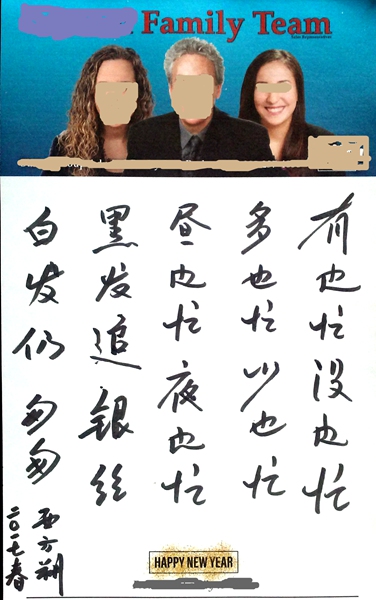 Family Team
有也忙没也忙
多也忙少也忙
昼也忙夜也忙
黑发追银丝
白发仍匆匆
西方朔
二〇一七春
HAPPY NEW YEAR